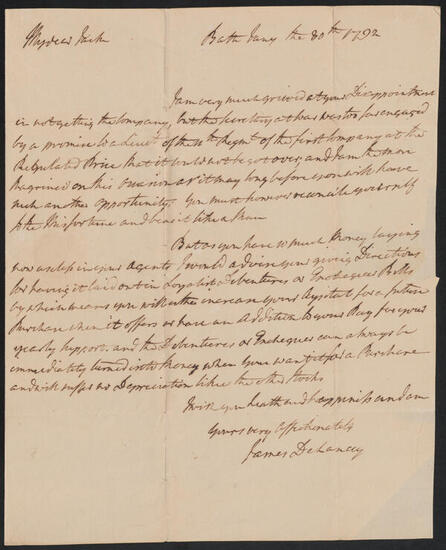 My dear Jack
Bath Jany the 30th 1792
I am very much grieved at your Disappointment
in not getting the Company, but the Secretary at war was too far engaged
by a promise to a Lieut of the Regmt of the first Company at the
Regulated Price that it could not be got over, and I am the more
Chagrined on this occasion as it may long before you will have
such another opportunity. You must however reconcile yourself
to the Misfortune and bear it like a Man
But as you have so much Money laying
now useless in your Agents I would advise your giving Directions
for having it laid out in Loyalist Debentures or Exchequer Bills
by which means you will either increase your Capital for a future
Purchase when it offers or have an Addition to your Pay for your
yearly support. and the Debentures or Exchequers can always be
immediately turned into Money when you want it for a Purchase
and will suffer no Depreciation like the other Stocks
I wish you health and happiness and am
Yours very affectionately
James DeLancey